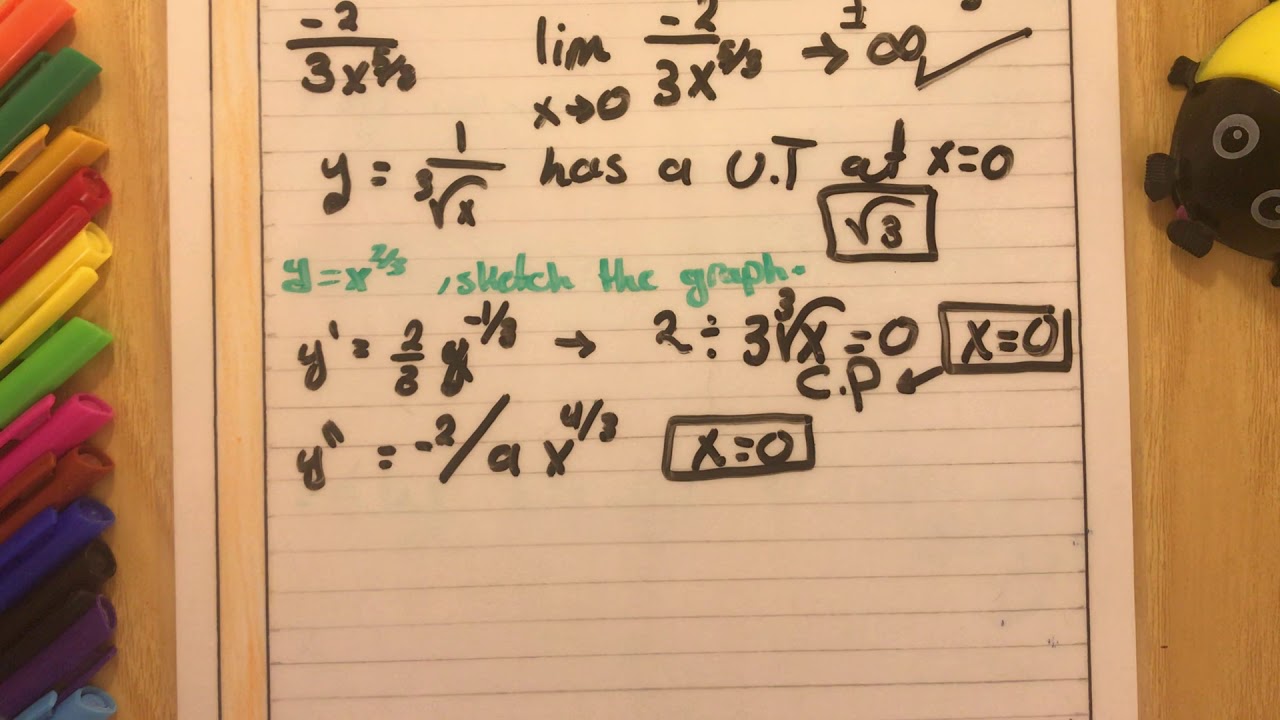 -2/3x^5/3 lim x→0 -2/3x^5/3 → ±∞
y = 1/∛x has a U.T at x=0
√3
y=x^2/3 , sketch the graph.
y' = 2/3 x^-1/3 → 2 ÷ 3∛x = 0 x=0
C.P ←
y" = -2/9 x^4/3 x=0